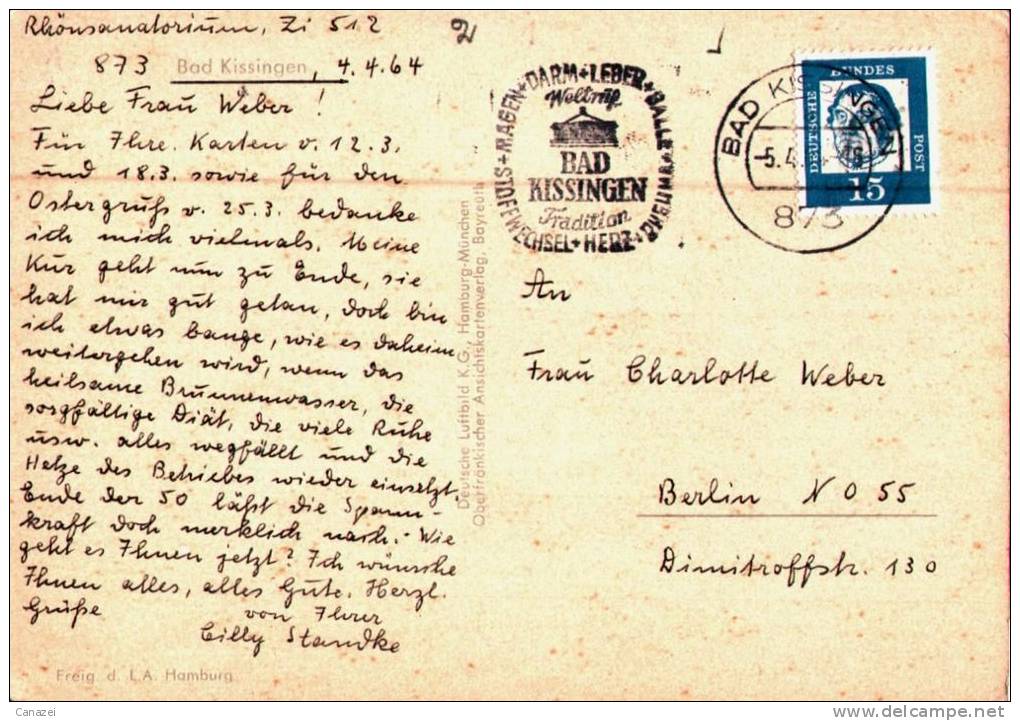 Rhönsanatorium, Zi 512
873 Bad Kissingen, 4.4.64
Liebe Frau Weber!
Für Ihre Karten v. 12.3.
und 18.3. sowie für den
Ostergruß v. 25.3. bedanke
ich mich vielmals. Meine
Kur geht nun zu Ende, sie
hat mir gut getan, doch bin
ich etwas bange, wie es daheim
weitergehen wird, wenn das
heilsame Brunnenwasser, die
sorgfältige Diät, die viele Ruhe
usw. alles wegfällt und die
Hetze des Betriebes wieder einsetzt.
Ende der 50 läßt die Spann-
kraft doch merklich nach. – Wie
geht es Ihnen jetzt? Ich wünsche
Ihnen alles, alles Gute. Herzl.
Grüße von Ihrer
Cilly Standke
Freig. d. L.A. Hamburg
Deutsche Luftbild K.G., Hamburg-München
Oberfränkischer Ansichtskartenverlag, Bayreuth
STOFFWECHSEL+MAGEN+DARM+LEBER+GALLE+RHEUMA+HERZ+
Weltruf
BAD
KISSINGEN
Tradition
BAD KISSINGEN
-5.4.
873
DEUTSCHE BUNDES POST
15
An
Frau Charlotte Weber
Berlin NO 55
Dimitroffstr. 130
Canazei
www.delcampe.net